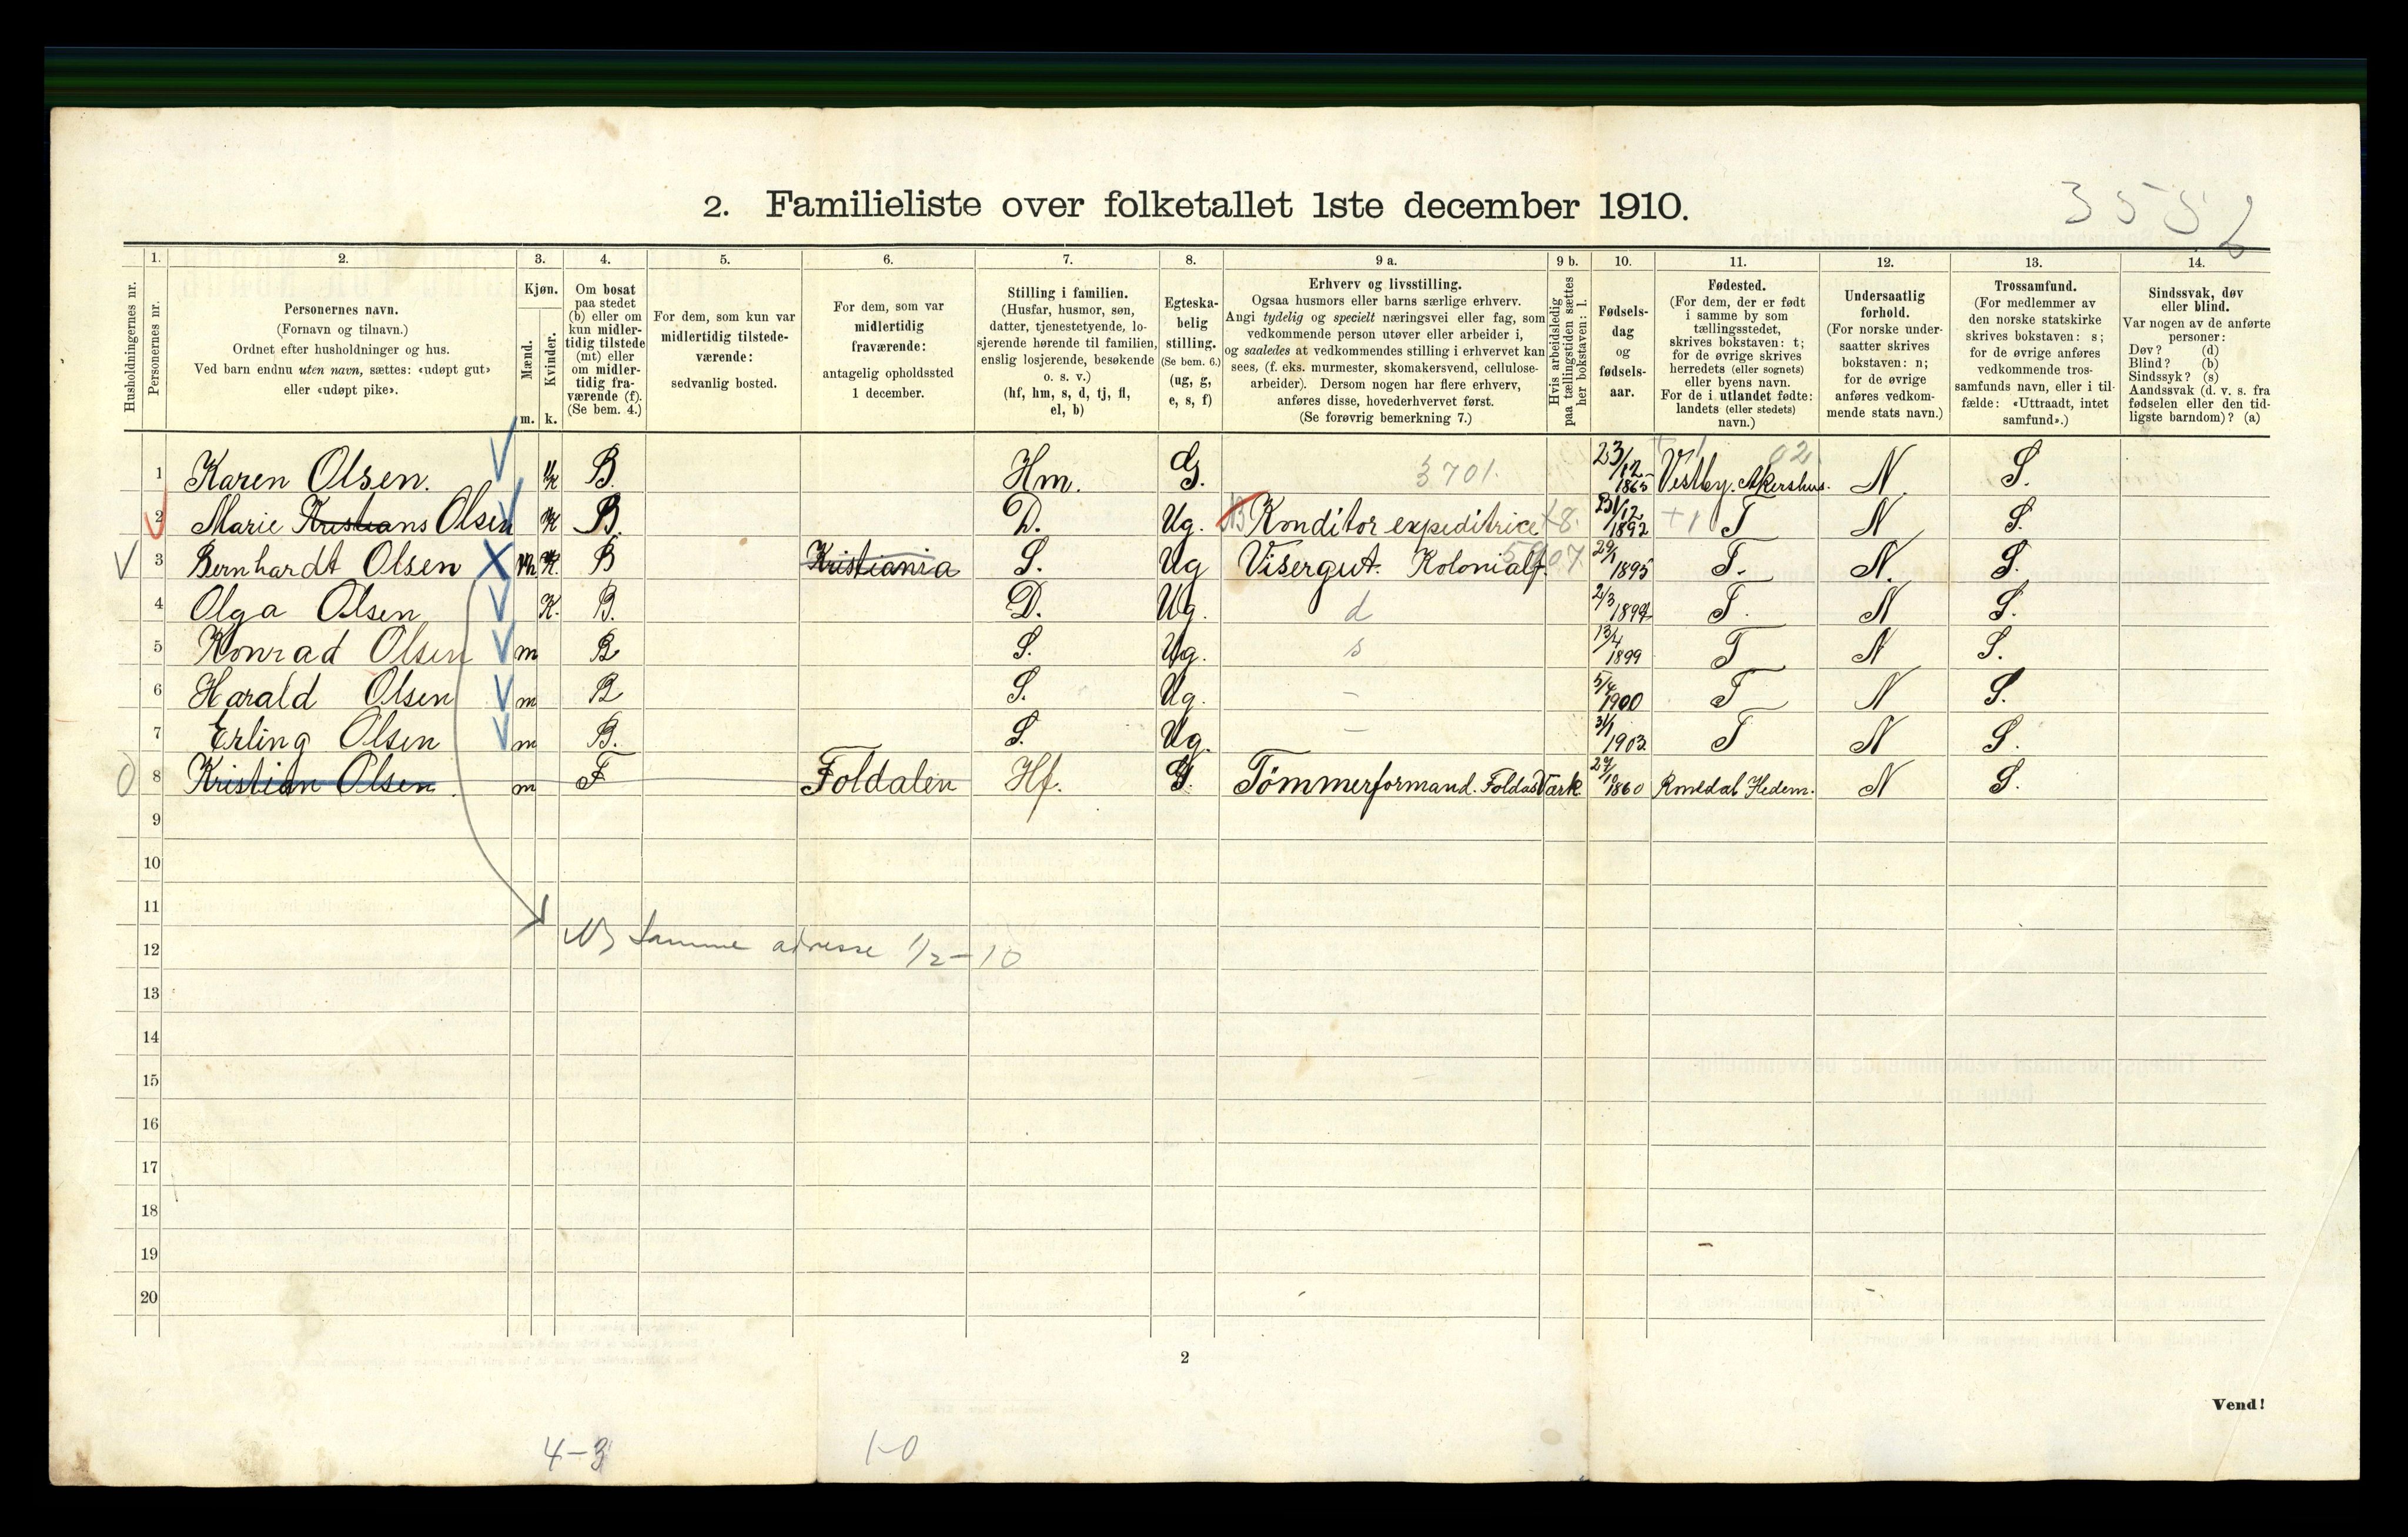 3552
2. Familieliste over folketallet 1ste december 1910.
Husholdningernes nr.
1.
Personernes nr.
2.
Personernes navn.
(Fornavn og tilnavn.)
Ordnet efter husholdninger og hus.
Ved barn endnu uten navn, sættes: «udøpt gut»
eller «udøpt pike».
3.
Kjøn.
Mænd.
Kvinder.
m.
k.
4.
Om bosat
paa stedet
(b) eller om
kun midler-
tidig tilstede
(mt) eller
om midler-
tidig fra-
værende (f).
(Se bem. 4.)
5.
For dem, som kun var
midlertidig tilstede-
værende:
sedvanlig bosted.
6.
For dem, som var
midlertidig
fraværende:
antagelig opholdssted
1 december.
7.
Stilling i familien.
(Husfar, husmor, søn,
datter, tjenestetyende, lo-
sjerende hørende til familien,
enslig losjerende, besøkende
o. s. v.)
(hf, hm, s, d, tj, fl,
el, b)
8.
Egteska-
belig
stilling.
(Se bem. 6.)
(ug, g,
e, s, f)
9 a.
Erhverv og livsstilling.
Ogsaa husmors eller barns særlige erhverv.
Angi tydelig og specielt næringsvei eller fag, som
vedkommende person utøver eller arbeider i,
og saaledes at vedkommendes stilling i erhvervet kan
sees, (f. eks. murmester, skomakersvend, cellulose-
arbeider). Dersom nogen har flere erhverv,
anføres disse, hovederhvervet først.
(Se forøvrig bemerkning 7.)
9 b.
Hvis arbeidsledig
paa tællingstiden sættes
her bokstaven: l.
10.
Fødsels-
dag
og
fødsels-
aar.
11.
Fødested.
(For dem, der er født
i samme by som
tællingsstedet,
skrives bokstaven: t;
for de øvrige skrives
herredets (eller sognets)
eller byens navn.
For de i utlandet fødte:
landets (eller stedets)
navn.)
12.
Undersaatlig
forhold.
(For norske under-
saatter skrives
bokstaven: n;
for de øvrige
anføres vedkom-
mende stats navn.)
13.
Trossamfund.
(For medlemmer av
den norske statskirke
skrives bokstaven: s;
for de øvrige anføres
vedkommende tros-
samfunds navn, eller i til-
fælde: «Uttraadt, intet
samfund».)
14.
Sindssvak, døv
eller blind.
Var nogen av de anførte
personer:
Døv? (d)
Blind? (b)
Sindssyk? (s)
Aandssvak (d. v. s. fra
fødselen eller den tid-
ligste barndom)? (a)
1 Karen Olsen. K B. Hm. G. 3701. 23/12 1865 Vestby. Akershus. 02 N. S.
2 Marie Kristians Olsen K B. D. Ug. Konditor expeditrice 1892 +1 T N S.
3 Bernhardt Olsen m. K. B Kristiania S. Ug Visergut. Kolonialf. 29/1 1895 T. N. S.
4 Olga Olsen K. B. D. Ug. d 2/3 1897 T. N S.
5 Konrad Olsen m B S. Ug. s 1899 T N S.
6 Harald Olsen m B S. Ug. - 5/4 1900 T N S.
7 Erling Olsen m B. S. Ug. - 31/1 1903 T N S.
8 Kristian Olsen. m F Foldalen Hf. G. Tömmerformand. Foldas Værk 1860 Romedal Hedem. N S.
9
10
11
12 NB Samme adresse 1/2-10
13
14
15
16
17
18
19
20
2
Vend!
4-3 1-0